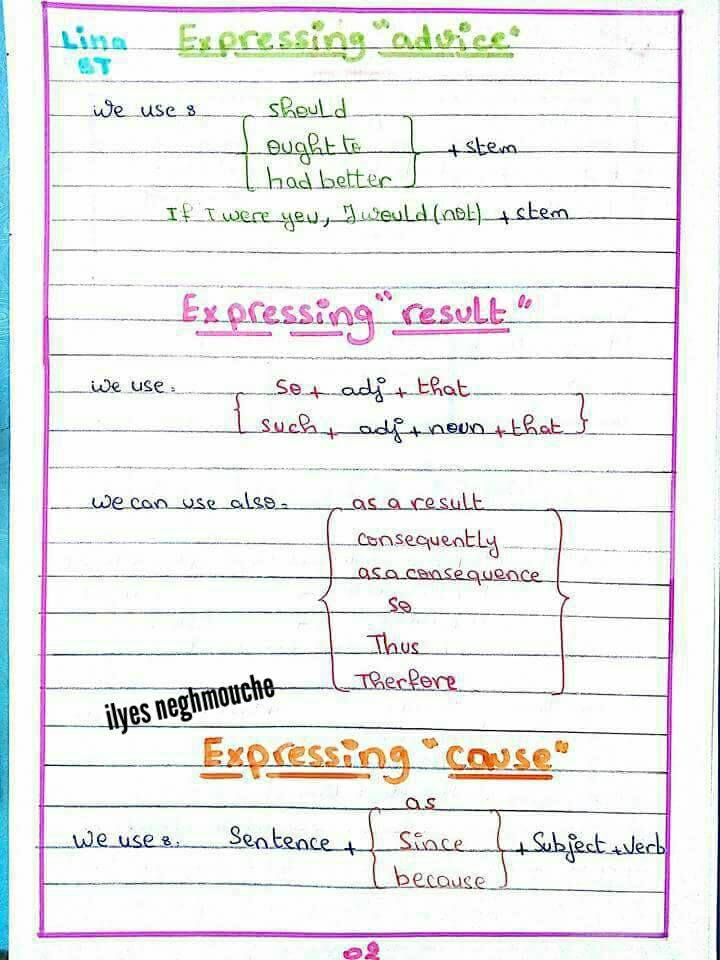 Lina Expressing "advice"
ST
we use : should
ought to + stem
had better
If I were you, I would (not) + stem
Expressing "result"
we use : so + adj + that
such + adj + noun + that
we can use also : as a result
consequently
as a consequence
so
Thus
Therfore
ilyes neghmouche
Expressing "cause"
as
we use : Sentence + Since + Subject + verb
because
02